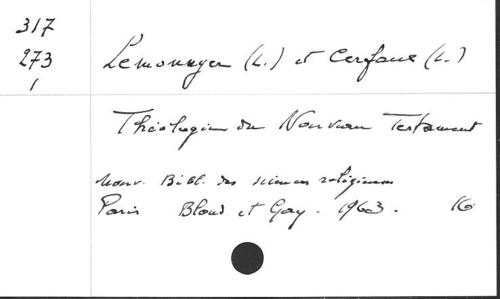 317
273
1
Lemonnyer (L.) et Cerfaux (L.)
Théologie du Nouveau Testament
Nouv. Bibl. des sciences religieuses
Paris Bloud et Gay. 1963. 16